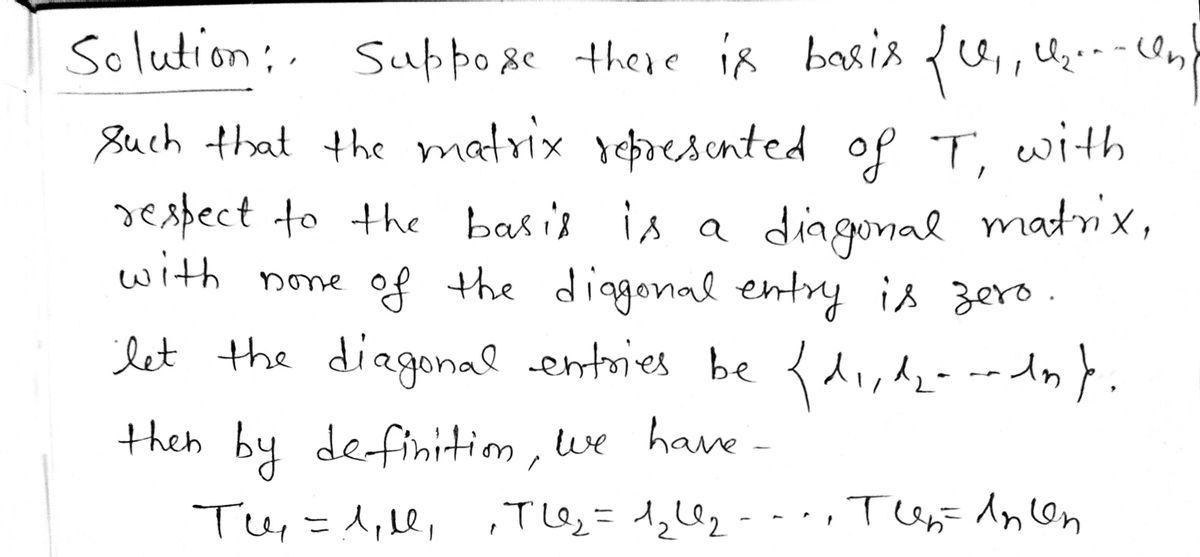 Solution:. Suppose there is basis {v₁, v₂... - vₙ}
such that the matrix represented of T, with
respect to the basis is a diagonal matrix,
with none of the diagonal entry is zero.
let the diagonal entries be {λ₁, λ₂- -- λₙ}.
then by definition, we have -
Tv₁ = λ₁v₁ , Tv₂ = λ₂v₂ - - - ., Tvₙ = λₙvₙ